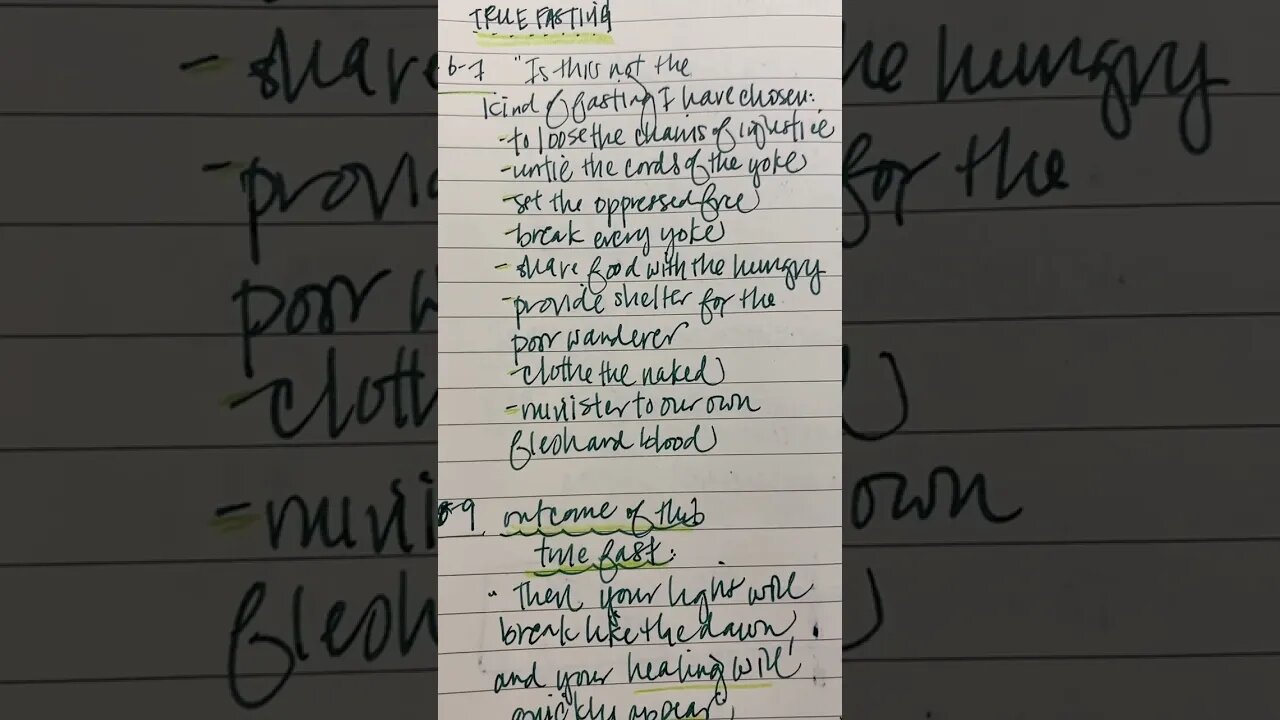 TRUE FASTING
6-7 "Is this not the
kind of fasting I have chosen:
-to loose the chains of injustice
-untie the cords of the yoke
-set the oppressed free
-break every yoke
- share food with the hungry
-provide shelter for the
poor wanderer
-clothe the naked
-minister to our own
flesh and blood
8-9 outcome of this
true fast:
" Then your light will
break like the dawn,
and your healing will
quickly appear,